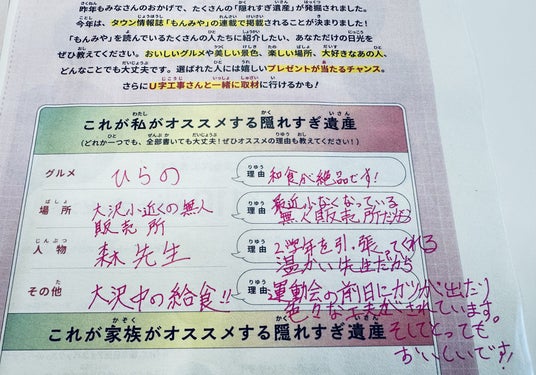 昨年もみなさんのおかげで、たくさんの「隠れすぎ遺産」が発掘されました。
今年は、タウン情報誌「もんみや」の連載で掲載されることが決まりました!
「もんみや」を読んでいるたくさんの人たちに紹介したい、あなただけの日光を
ぜひ教えてください。おいしいグルメや美しい景色、楽しい場所、大好きなあの人、
どんなことでも大丈夫です。選ばれた人には嬉しいプレゼントが当たるチャンス。
さらにU字工事さんと一緒に取材に行けるかも!
これが私がオススメする隠れすぎ遺産
(どれか一つでも、全部書いても大丈夫!ぜひオススメの理由も教えてください!)
グルメ ひらの 理由 和食が絶品です!
場所 大沢小近くの無人販売所 理由 最近少なくなっている無人販売所だから
人物 森先生 理由 2学年を引っ張ってくれる温かい先生だから
その他 大沢中の給食!! 理由 運動会の前日にカツが出たり
色々な工夫がされています。
そしてとっても
おいしいです!
これが家族がオススメする隠れすぎ遺産